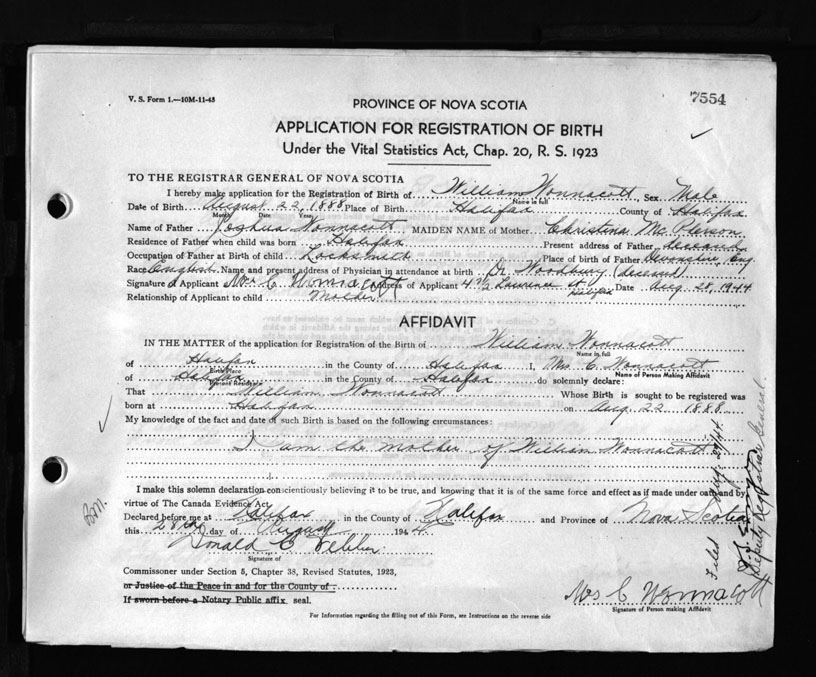 V. S. Form 1.—10M-11-43
7554
PROVINCE OF NOVA SCOTIA
APPLICATION FOR REGISTRATION OF BIRTH
Under the Vital Statistics Act, Chap. 20, R. S. 1923
TO THE REGISTRAR GENERAL OF NOVA SCOTIA
I hereby make application for the Registration of Birth of William Wonnacott, Sex Male
Name in full
Date of Birth August 22, 1888 Place of Birth Halifax County of Halifax
Month Date Year
Name of Father Joshua Wonnacott MAIDEN NAME of Mother Christina McPherson
Residence of Father when child was born Halifax Present address of Father deceased
Occupation of Father at Birth of child Locksmith Place of birth of Father Devonshire, Eng
Race English Name and present address of Physician in attendance at birth Dr. Woodbury (deceased)
Signature of Applicant Mrs C Wonnacott Address of Applicant 4 1/2 Lawrence St Halifax Date Aug. 28, 1944
Relationship of Applicant to child Mother
AFFIDAVIT
IN THE MATTER of the application for Registration of the Birth of William Wonnacott
Name in full
of Halifax in the County of Halifax I, Mrs. C. Wonnacott
Birth Place Name of Person Making Affidavit
of Halifax in the County of Halifax do solemnly declare:
Present Residence
That William Wonnacott Whose Birth is sought to be registered was
born at Halifax on Aug. 22 1888
My knowledge of the fact and date of such Birth is based on the following circumstances:
I am the mother of William Wonnacott
I make this solemn declaration conscientiously believing it to be true, and knowing that it is of the same force and effect as if made under oath and by
virtue of The Canada Evidence Act.
Declared before me at Halifax in the County of Halifax and Province of Nova Scotia
this 28th day of August 1944
Donald C Webber
Signature of
Commissioner under Section 5, Chapter 38, Revised Statutes, 1923,
or Justice of the Peace in and for the County of
If sworn before a Notary Public affix seal.
Mrs C Wonnacott
Signature of Person making Affidavit
For Information regarding the filling out of this Form, see Instructions on the reverse side
Filed
Deputy Registrar General